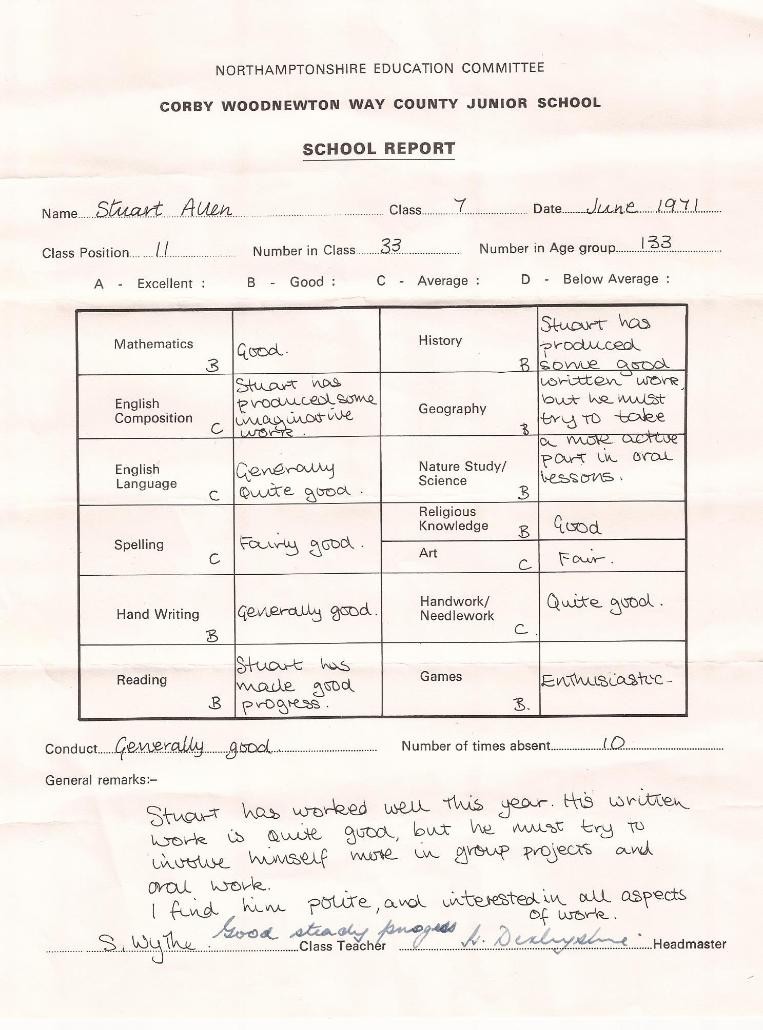 NORTHAMPTONSHIRE EDUCATION COMMITTEE
CORBY WOODNEWTON WAY COUNTY JUNIOR SCHOOL
SCHOOL REPORT
Name Stuart Allen Class 7 Date June 1971
Class Position 11 Number in Class 33 Number in Age group 133
A - Excellent : B - Good : C - Average : D - Below Average :
Mathematics B Good.
English Composition C Stuart has
produced some
imaginative
work.
English Language C Generally
Quite good.
Spelling C Fairly good.
Hand Writing B Generally good.
Reading B Stuart has
made good
progress.
History B
Geography B
Nature Study/ Science B
Stuart has
produced
some good
written work,
but he must
try to take
a more active
part in oral
lessons.
Religious Knowledge B Good
Art C Fair.
Handwork/ Needlework C. Quite good.
Games B. Enthusiastic-
Conduct Generally good Number of times absent 10
General remarks:-
Stuart has worked well this year. His written
work is quite good, but he must try to
involve himself more in group projects and
oral work.
I find him polite, and interested in all aspects
of work.
Good steady progress
S. Wythe. Class Teacher Derbyshire Headmaster